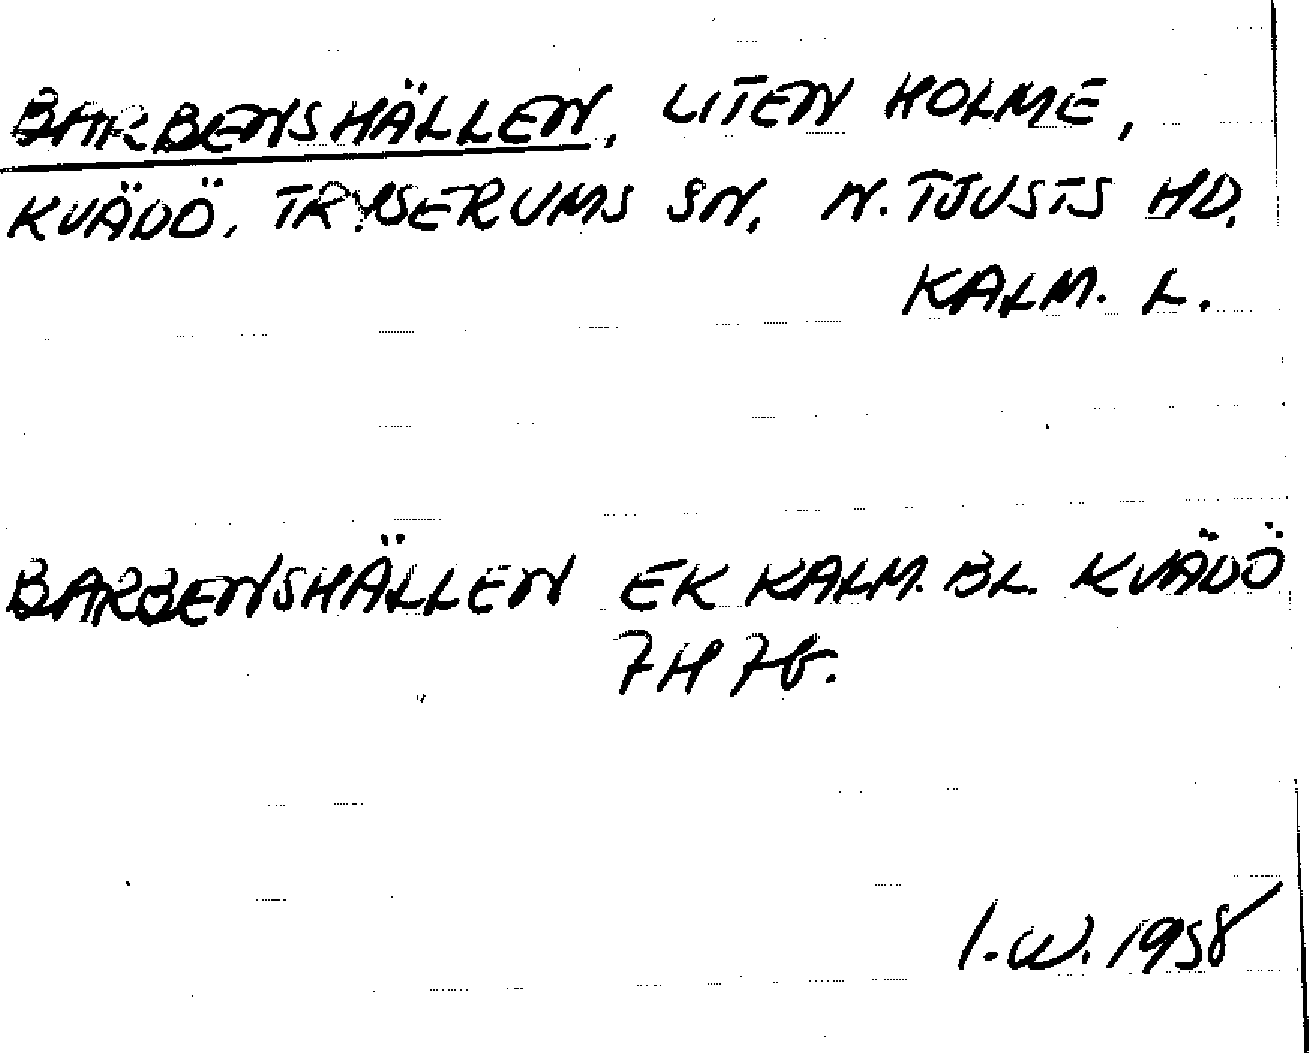 BARBENSHÄLLEN, LITEN HOLME,
KVÄDÖ, TRYSERUMS SN, N. TJUSTS HD,
KALM. L.
BARBENSHÄLLEN EK KALM. BL. KVÄDÖ
7H 7b.
I.W. 1958